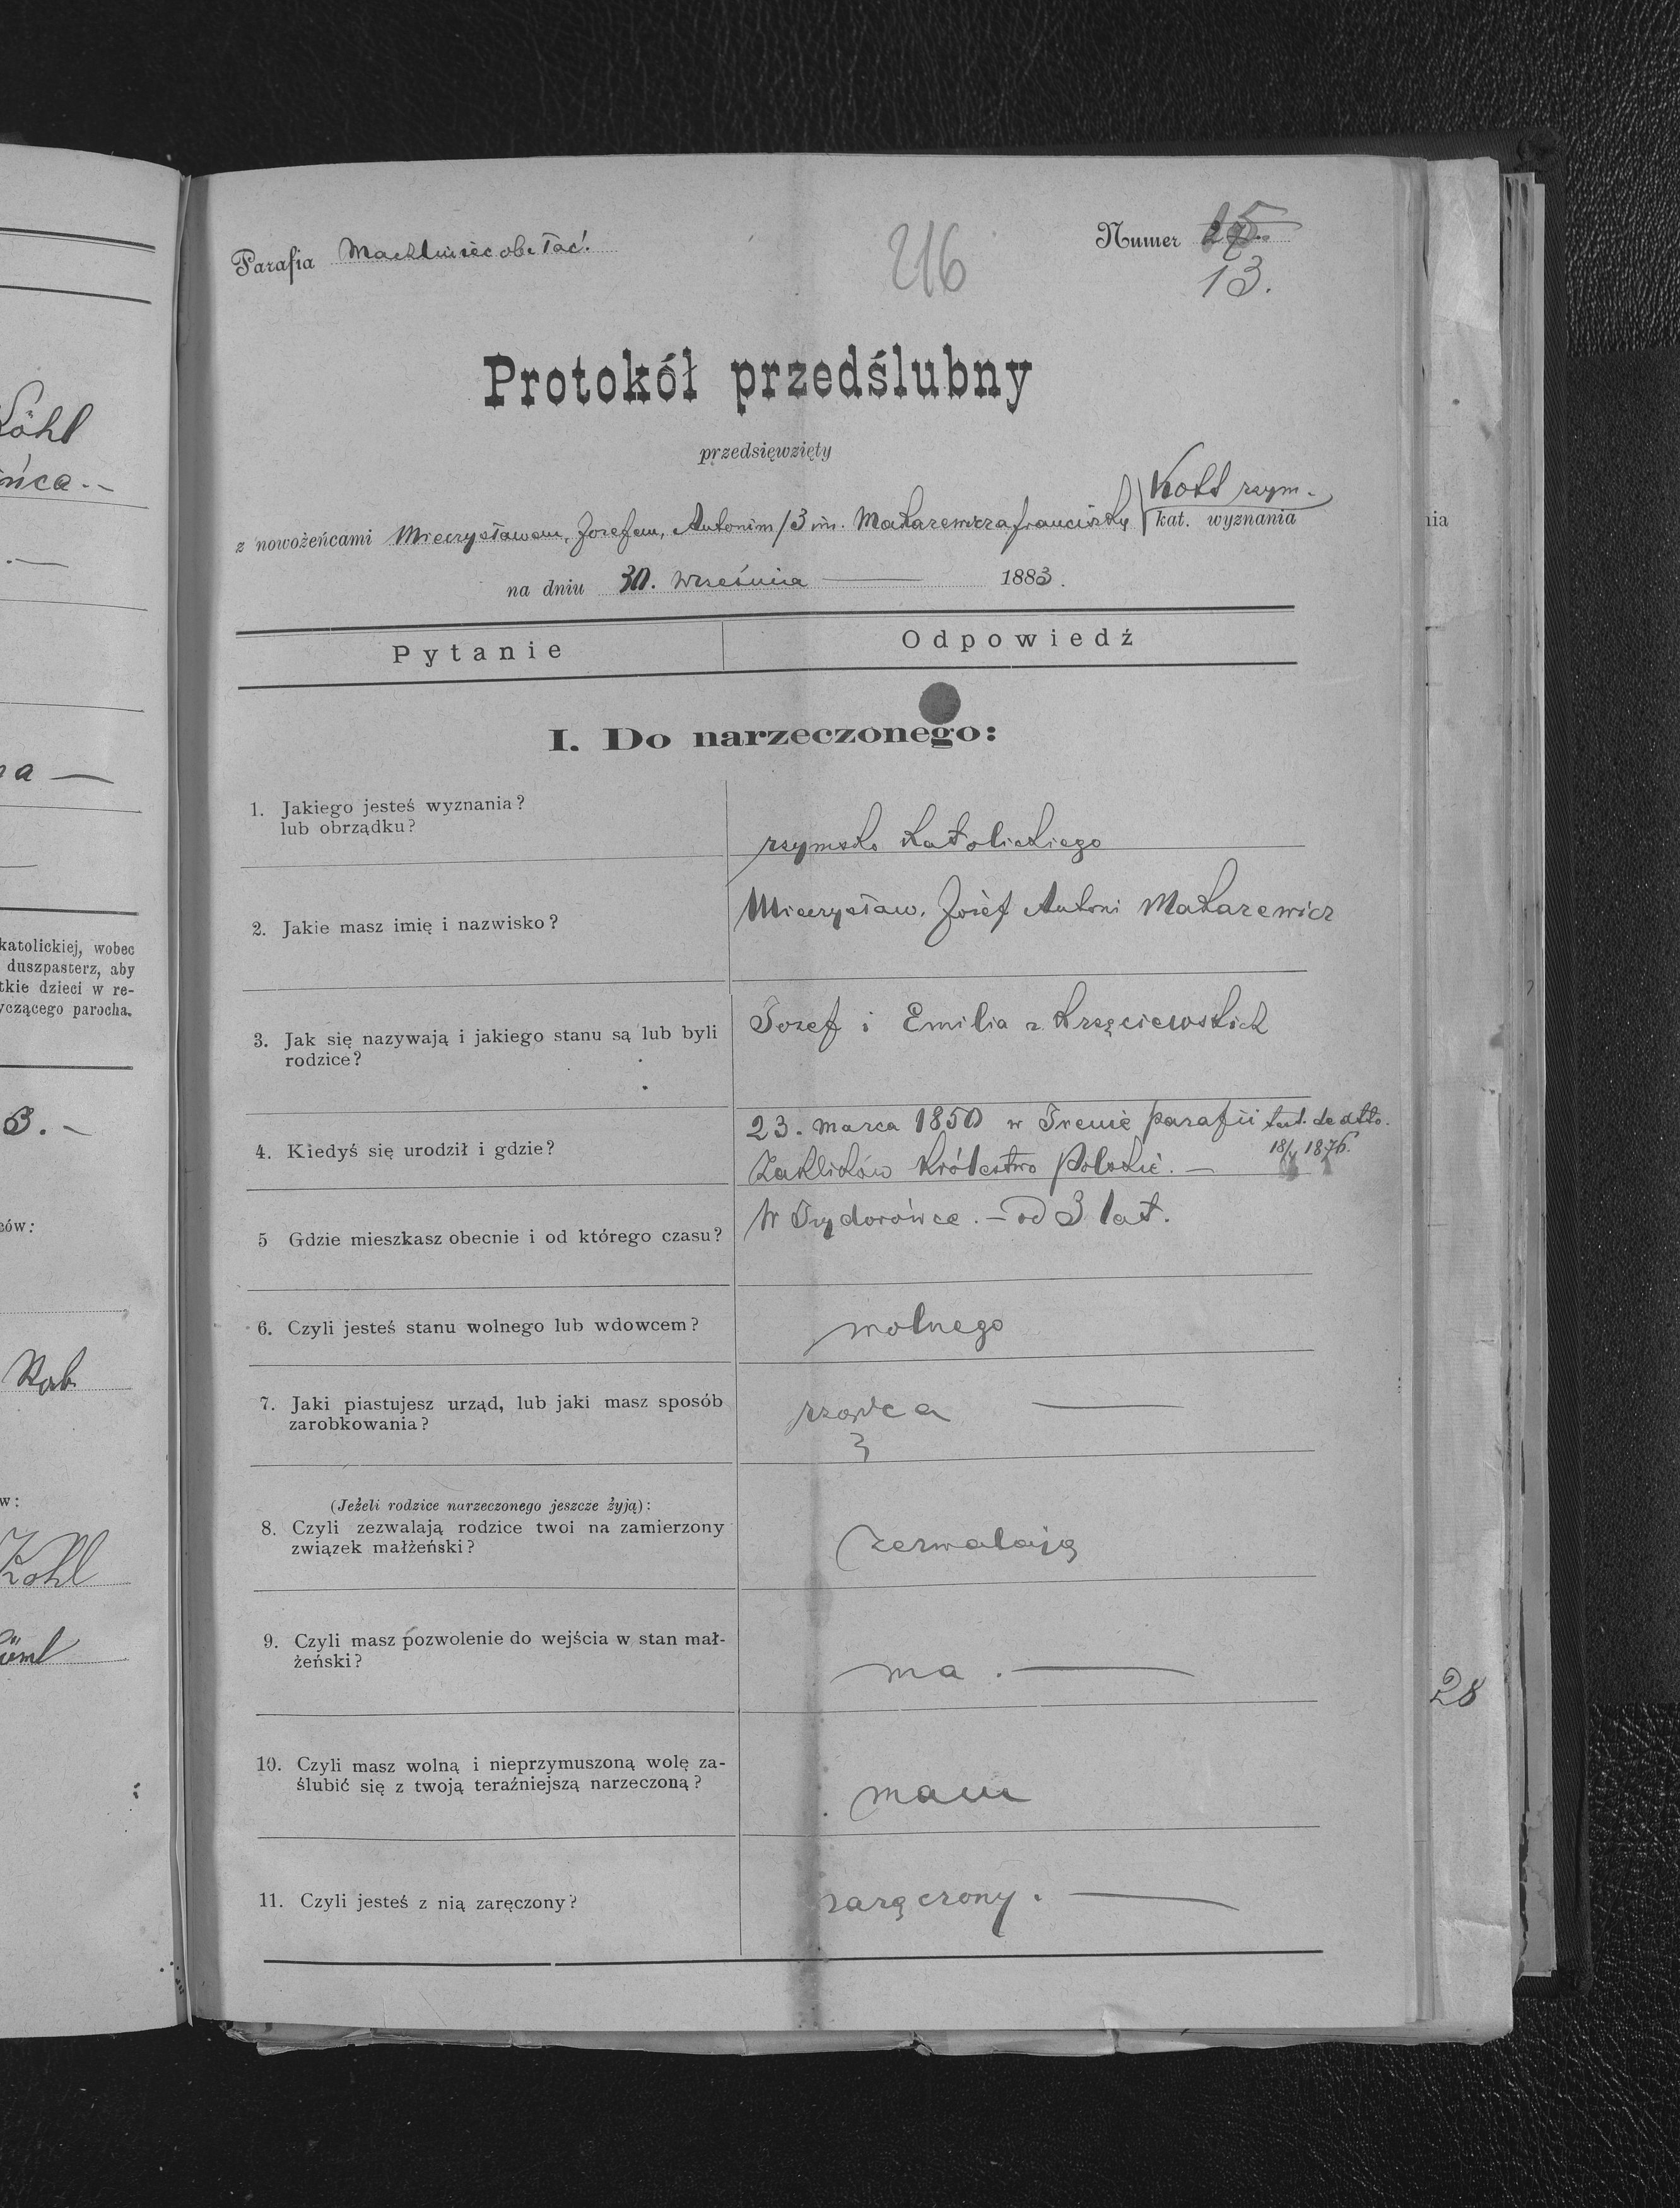 Parafia Machliniec ob. łać.
216
Numer 25.
13.
Protokół przedślubny
przedsięwzięty
z nowożeńcami Mieczysławem, Józefem, Antonim /3 im. Makarewicza Franciszką Kohl rzym.
kat. wyznania
na dniu 30. września 1883.
Pytanie
Odpowiedź
I. Do narzeczonego:
1. Jakiego jesteś wyznania?
lub obrządku?
rzymsko katolickiego
2. Jakie masz imię i nazwisko?
Mieczysław, Józef Antoni Makarewicz
3. Jak się nazywają i jakiego stanu są lub byli
rodzice?
Józef i Emilia z
4. Kiedyś się urodził i gdzie?
23. marca 1850 w Irenie parafii
Zaklików Królestwo Polskie. —
18/ 1876.
5 Gdzie mieszkasz obecnie i od którego czasu?
W Izydorówce. — od 3 lat.
6. Czyli jesteś stanu wolnego lub wdowcem?
wolnego
7. Jaki piastujesz urząd, lub jaki masz sposób
zarobkowania?
rządca
(Jeżeli rodzice narzeczonego jeszcze żyją):
8. Czyli zezwalają rodzice twoi na zamierzony
związek małżeński?
zezwalają
9. Czyli masz pozwolenie do wejścia w stan mał-
żeński?
ma. —
10. Czyli masz wolną i nieprzymuszoną wolę za-
ślubić się z twoją teraźniejszą narzeczoną?
mam
11. Czyli jesteś z nią zaręczony?
zaręczony. —
katolickiej, wobec
duszpasterz, aby
tkie dzieci w re-
yczącego parocha.
3. —
ców:
w:
Kohl
nia
28